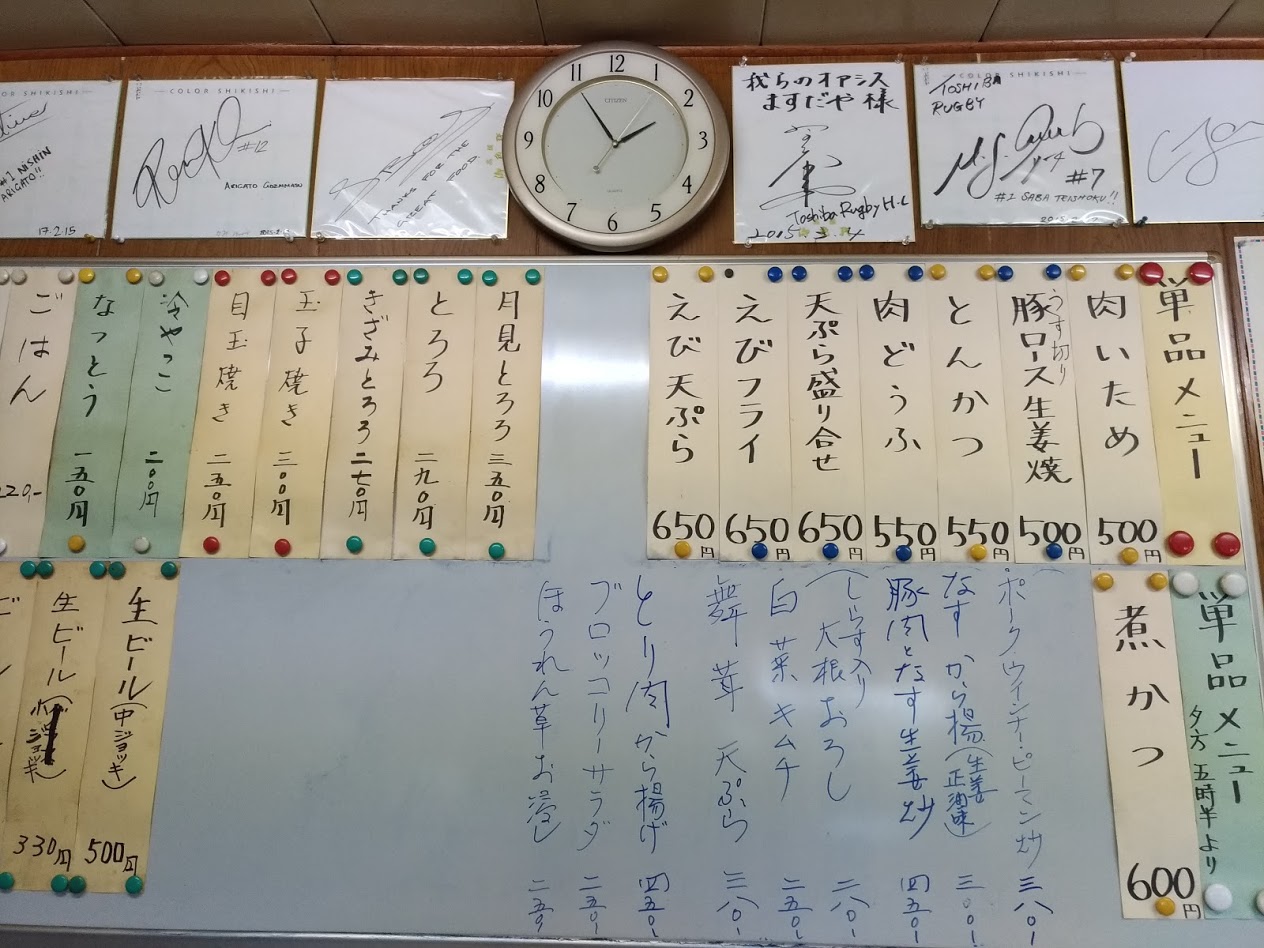 COLOR SHIKISHI
#1 NISHIN
ARIGATO!!
17.2.15
COLOR SHIKISHI
#12
ARIGATO GOZAIMASU
THANKS FOR THE
GREAT FOOD
12
1
2
3
4
5
6
7
8
9
10
11
CITIZEN
QUARTZ
我らのオアシス
ますだや様
Toshiba Rugby H.C
2015 3.4
COLOR SHIKISHI
TOSHIBA
RUGBY
#7
#1 SABA TEISHOKU!!
単品メニュー
肉いため 500円
うす切り
豚ロース生姜焼 500円
とんかつ 550円
肉どうふ 550円
天ぷら盛り合せ 650円
えびフライ 650円
えび天ぷら 650円
月見とろろ 三五〇円
とろろ 二九〇円
きざみとろろ 二七〇円
玉子焼き 三〇〇円
目玉焼き 二五〇円
冷やっこ 二〇〇円
なっとう 一五〇円
ごはん 220,-
単品メニュー
夕方 五時半より
煮かつ 600円
ポーク・ウインナー・ピーマン炒 三八〇-
なす から揚(生姜正油味) 三〇〇-
豚肉となす生姜炒 四五〇-
(しらす入り
大根おろし 二八〇-
白菜キムチ 二五〇-
舞茸 天ぷら 三八〇-
とり肉から揚げ 四五〇-
ブロッコリーサラダ 二五〇-
ほうれん草お浸し 二五〇-
生ビール(中ジョッキ) 500円
生ビール 330円